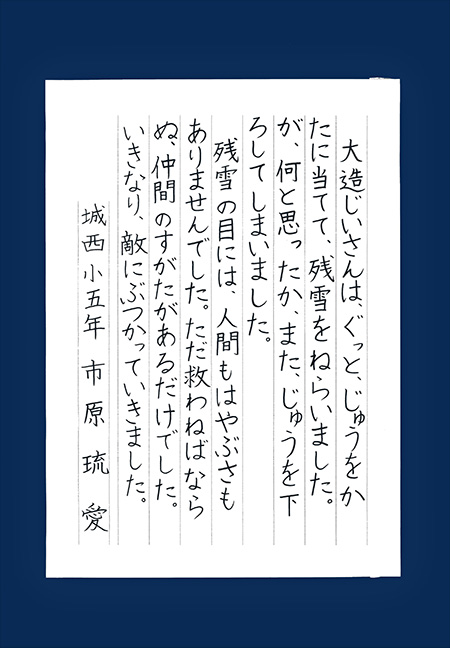 大造じいさんは、ぐっと、じゅうをか
たに当てて、残雪をねらいました。
が、何と思ったか、また、じゅうを下
ろしてしまいました。
残雪の目には、人間もはやぶさも
ありませんでした。ただ救わねばなら
ぬ、仲間のすがたがあるだけでした。
いきなり、敵にぶつかっていきました。
城西小五年 市原琉愛